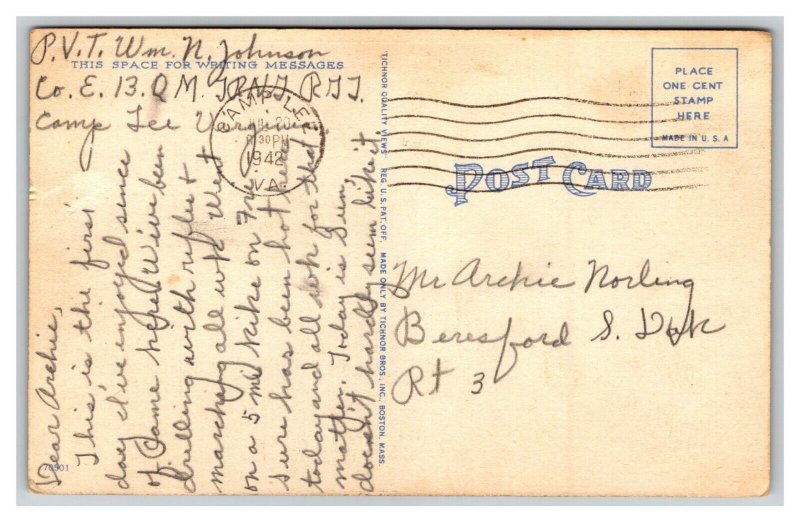 P.V.T. Wm. N. Johnson
THIS SPACE FOR WRITING MESSAGES
Co. E. 13. Q M. TRNG. RGT.
Camp Lee Virginia
Dear Archie,
This is the first
day I've enjoyed since
I came here. We've been
drilling with rifles &
marching all wk. Went
on a 5 mi hike on Fri.
Sure has been hot here
today and all wk for that
matter. Today is Sun,
doesn't hardly seem like it.
70501
CAMP LEE
20
30 PM
1942
VA.
TICHNOR QUALITY VIEWS REG. U. S. PAT. OFF. MADE ONLY BY TICHNOR BROS., INC., BOSTON, MASS.
PLACE
ONE CENT
STAMP
HERE
MADE IN U. S. A
POST CARD
Mr Archie Norling
Beresford S. Dak
Rt 3